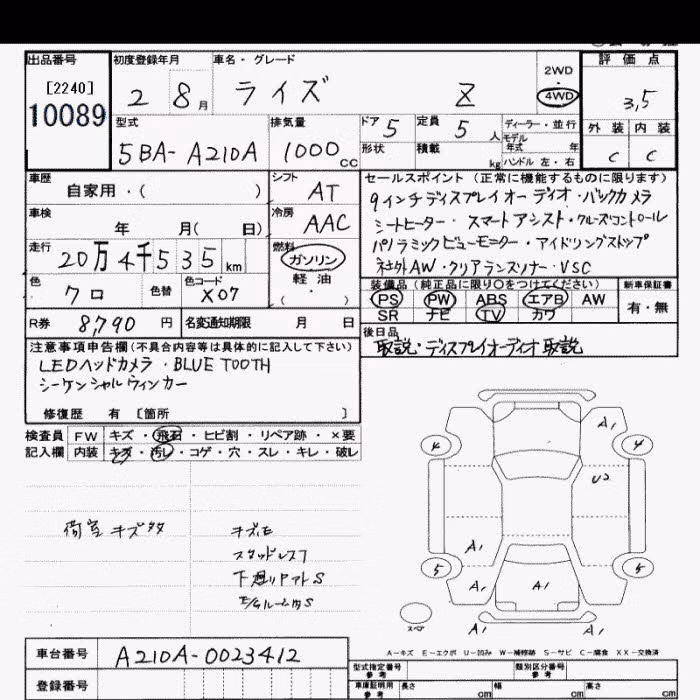 出品番号 初度登録年月 車名・グレード 2WD 評価点
[2240] 2 8月 ライズ Z 4WD 3,5
10089
型式 排気量 ドア 5 定員 5人 ディーラー・並行 外装 内装
5BA-A210A 1000cc 形状 積載 kg モデル年式 年 C C
ハンドル 左・右
車歴 シフト セールスポイント (正常に機能するものに限ります)
自家用・( ) AT 9インチディスプレイオーディオ・バックカメラ
車検 冷房 シートヒーター・スマートアシスト・クルーズコントロール
年 月( 日) AAC パノラミックビューモニター・アイドリングストップ
走行 燃料 社外AW・クリアランスソナー・VSC
20万4千535km ガソリン
軽油・( ) 装備品 (純正品に限り○をつけてください) 新車保証書
色 色替 色コード PS PW ABS エアB AW 有・無
クロ X07 SR ナビ TV カワ
R券 8,790円 名変通知期限 月 日 後日品
取説・ディスプレイオーディオ取説
注意事項申告欄 (不具合内容等は具体的に記入して下さい)
LEDヘッドカメラ・BLUE TOOTH
シーケンシャルウィンカー
修復歴 有 [箇所 ]
検査員 FW キズ・飛石・ヒビ割・リペア跡・×要
記入欄 内装 キズ・汚レ・コゲ・穴・スレ・キレ・破レ
荷室キズ多 キズモ
スタッドレス7
下廻リPアトS
E/gルームS
A1
4 4
U2
A1
5 5
A1 A1
スペア
A1 A1
A-キズ E-エクボ U-凹み W-補修跡 S-サビ C-腐食 XX-交換済
車台番号 A210A-0023412 型式指定番号 参考 類別区分番号 参考
登録番号 車庫証明用 参考 長さ cm 幅 cm 高さ cm